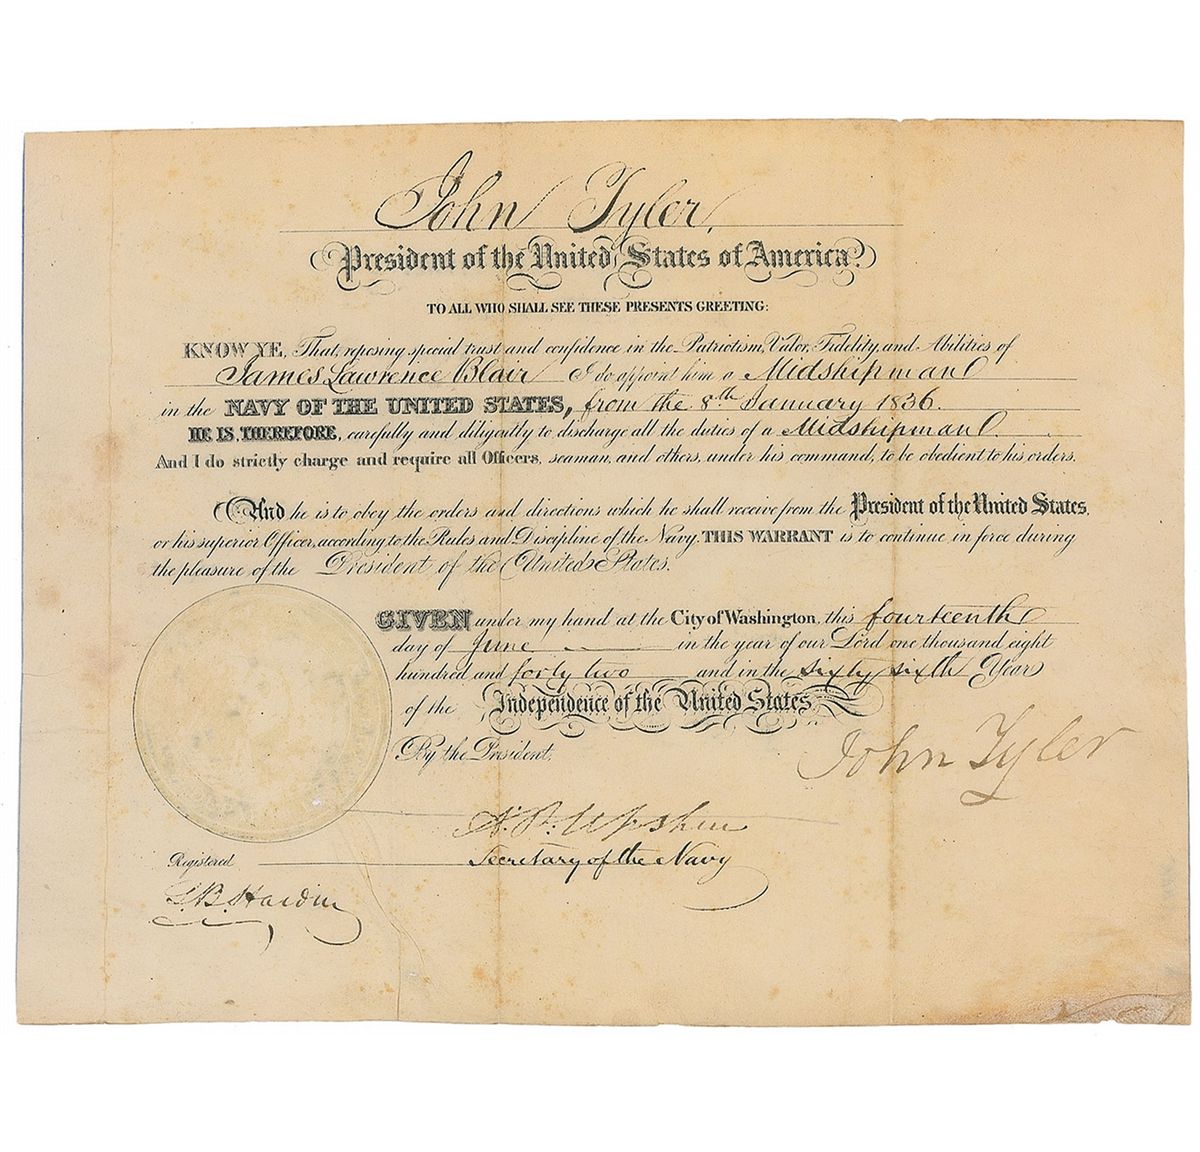 John Tyler,
President of the United States of America.
TO ALL WHO SHALL SEE THESE PRESENTS GREETING:
KNOW YE, That, reposing special trust and confidence in the Patriotism, Valor, Fidelity, and Abilities of
James Lawrence Blair I do appoint him a Midshipman
in the NAVY OF THE UNITED STATES, from the 8th January 1836.
HE IS, THEREFORE, carefully and diligently to discharge all the duties of a Midshipman
And I do strictly charge and require all Officers, seaman, and others, under his command, to be obedient to his orders.
And he is to obey the orders and directions which he shall receive from the President of the United States,
or his superior Officer, according to the Rules and Discipline of the Navy. THIS WARRANT is to continue in force during
the pleasure of the President of the United States.
GIVEN under my hand at the City of Washington, this fourteenth
day of June in the year of our Lord one thousand eight
hundred and forty two and in the sixty sixth Year
of the Independence of the United States
By the President,
John Tyler
A. P. Upshur
Registered Secretary of the Navy